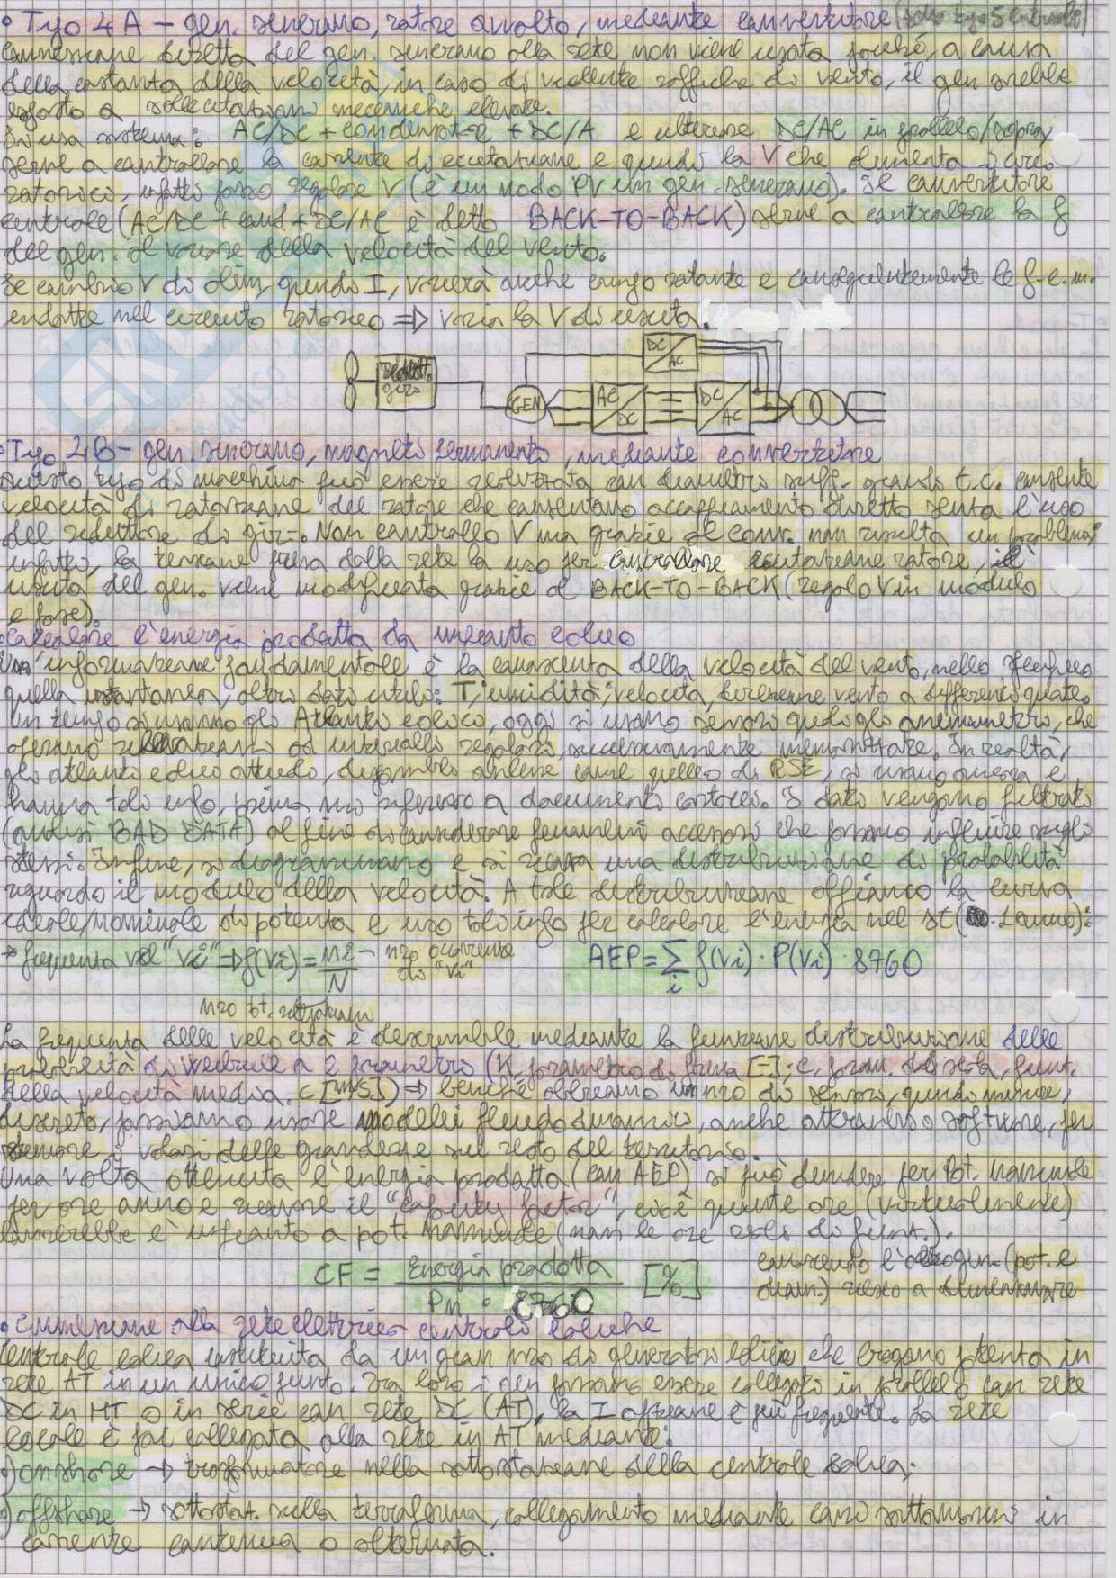 • Tipo 4A - gen. sincrono, rotore avvolto, mediante convertitore
connessione diretta del gen. sincrono alla rete non viene usata poiché, a causa
della costanza della velocità, in caso di violente raffiche di vento, il gen. sarebbe
esposto a sollecitazioni meccaniche elevate.
Si usa sistema: AC/DC + condensatore + DC/A e ulteriore DC/AC in parallelo/
serve a controllare la corrente di eccitazione e quindi la V che alimenta circ.
rotorico, infatti posso regolare V (è un nodo PV un gen. sincrono). Il convertitore
centrale (AC/DC + cond + DC/AC è detto BACK-TO-BACK) serve a controllare la f
del gen. al variare della velocità del vento.
Se cambio V di alim, quindi I, varierà anche campo rotante e conseguentemente le f.e.m.
indotte nel circuito rotorico ⇒ varia la V di uscita.
DC
AC
GEN
AC
DC
DC
AC
Tipo 4B - gen. sincrono, magneti permanenti, mediante convertitore
Questo tipo di macchina può essere realizzata con diametro suff. grande t.c. consente
velocità di rotazione del rotore che consentano accoppiamento diretto senza l'uso
del riduttore di giri. Non controllo V ma grazie al conv. non risulta un problema
infatti, la tensione presa dalla rete la uso per controllare eccitazione rotore, in
uscita del gen. viene modificata grazie al BACK-TO-BACK (regolo V in modulo
e fase).
• Calcolare l'energia prodotta da impianto eolico
Una informazione fondamentale è la conoscenza della velocità del vento, nello specifico
quella istantanea, altri dati utili: T, umidità, velocità, direzione vento a differenti quote.
Un tempo si usavano gli Atlanti eolici, oggi si usano sensori quali gli anemometri, che
operano ad intervalli regolari, successivamente memorizzate. In realtà,
gli atlanti eolici attuali, disponibili online come quello di RSE, si usano ancora e
hanno tali info, prima mi riferivo a documenti cartacei. I dati vengono filtrati
(analisi BAD DATA) al fine di considerare fenomeni accessori che possono influire sugli
stessi. Infine, si diagrammano e si ricava una distribuzione di probabilità
riguardo il modulo della velocità. A tale distribuzione affianco la curva
ideale/nominale di potenza e uso tali info per calcolare l'energia nel Δt (1 anno):
→ frequenza vel "vi" ⇒ f(vi) = ni/N - nro occorrenze di "vi"
AEP = Σi f(vi) · P(vi) · 8760
nro tot.
La frequenza delle velocità è descrivibile mediante la funzione distribuzione delle
probabilità di Weibull a 2 parametri (K, parametro di forma [-]; c, param. di scala, funz.
della velocità media. c [m/s]) ⇒ benché abbiamo un nro di sensori, quindi misure,
discreto, possiamo usare modelli fluidodinamici, anche attraverso software, per
stimare i valori delle grandezze sul resto del territorio.
Una volta ottenuta l'energia prodotta (con AEP) si può dividere per Pot. nominale
per ore anno e ricavare il "capacity factor", cioè quante ore (virtualmente)
lavorerebbe l'impianto a pot. nominale (non le ore reali di funz.).
CF = Energia prodotta / Pn · 8760 [%]
conoscendo (pot. e
riesco a dimensionare
• Connessione alla rete elettrica centrali eoliche
Centrale eolica costituita da un gran nro di generatori eolici che erogano potenza in
rete AT in un unico punto. Tra loro i gen possono essere collegati in parallelo con rete
DC in MT o in serie con rete DC (AT), la I opzione è più frequente. La rete
locale è poi collegata alla rete in AT mediante:
) onshore → trasformatore nella sottostazione della centrale eolica;
) offshore → sottostaz. sulla terraferma, collegamento mediante cavi sottomarini in
corrente continua o alternata.